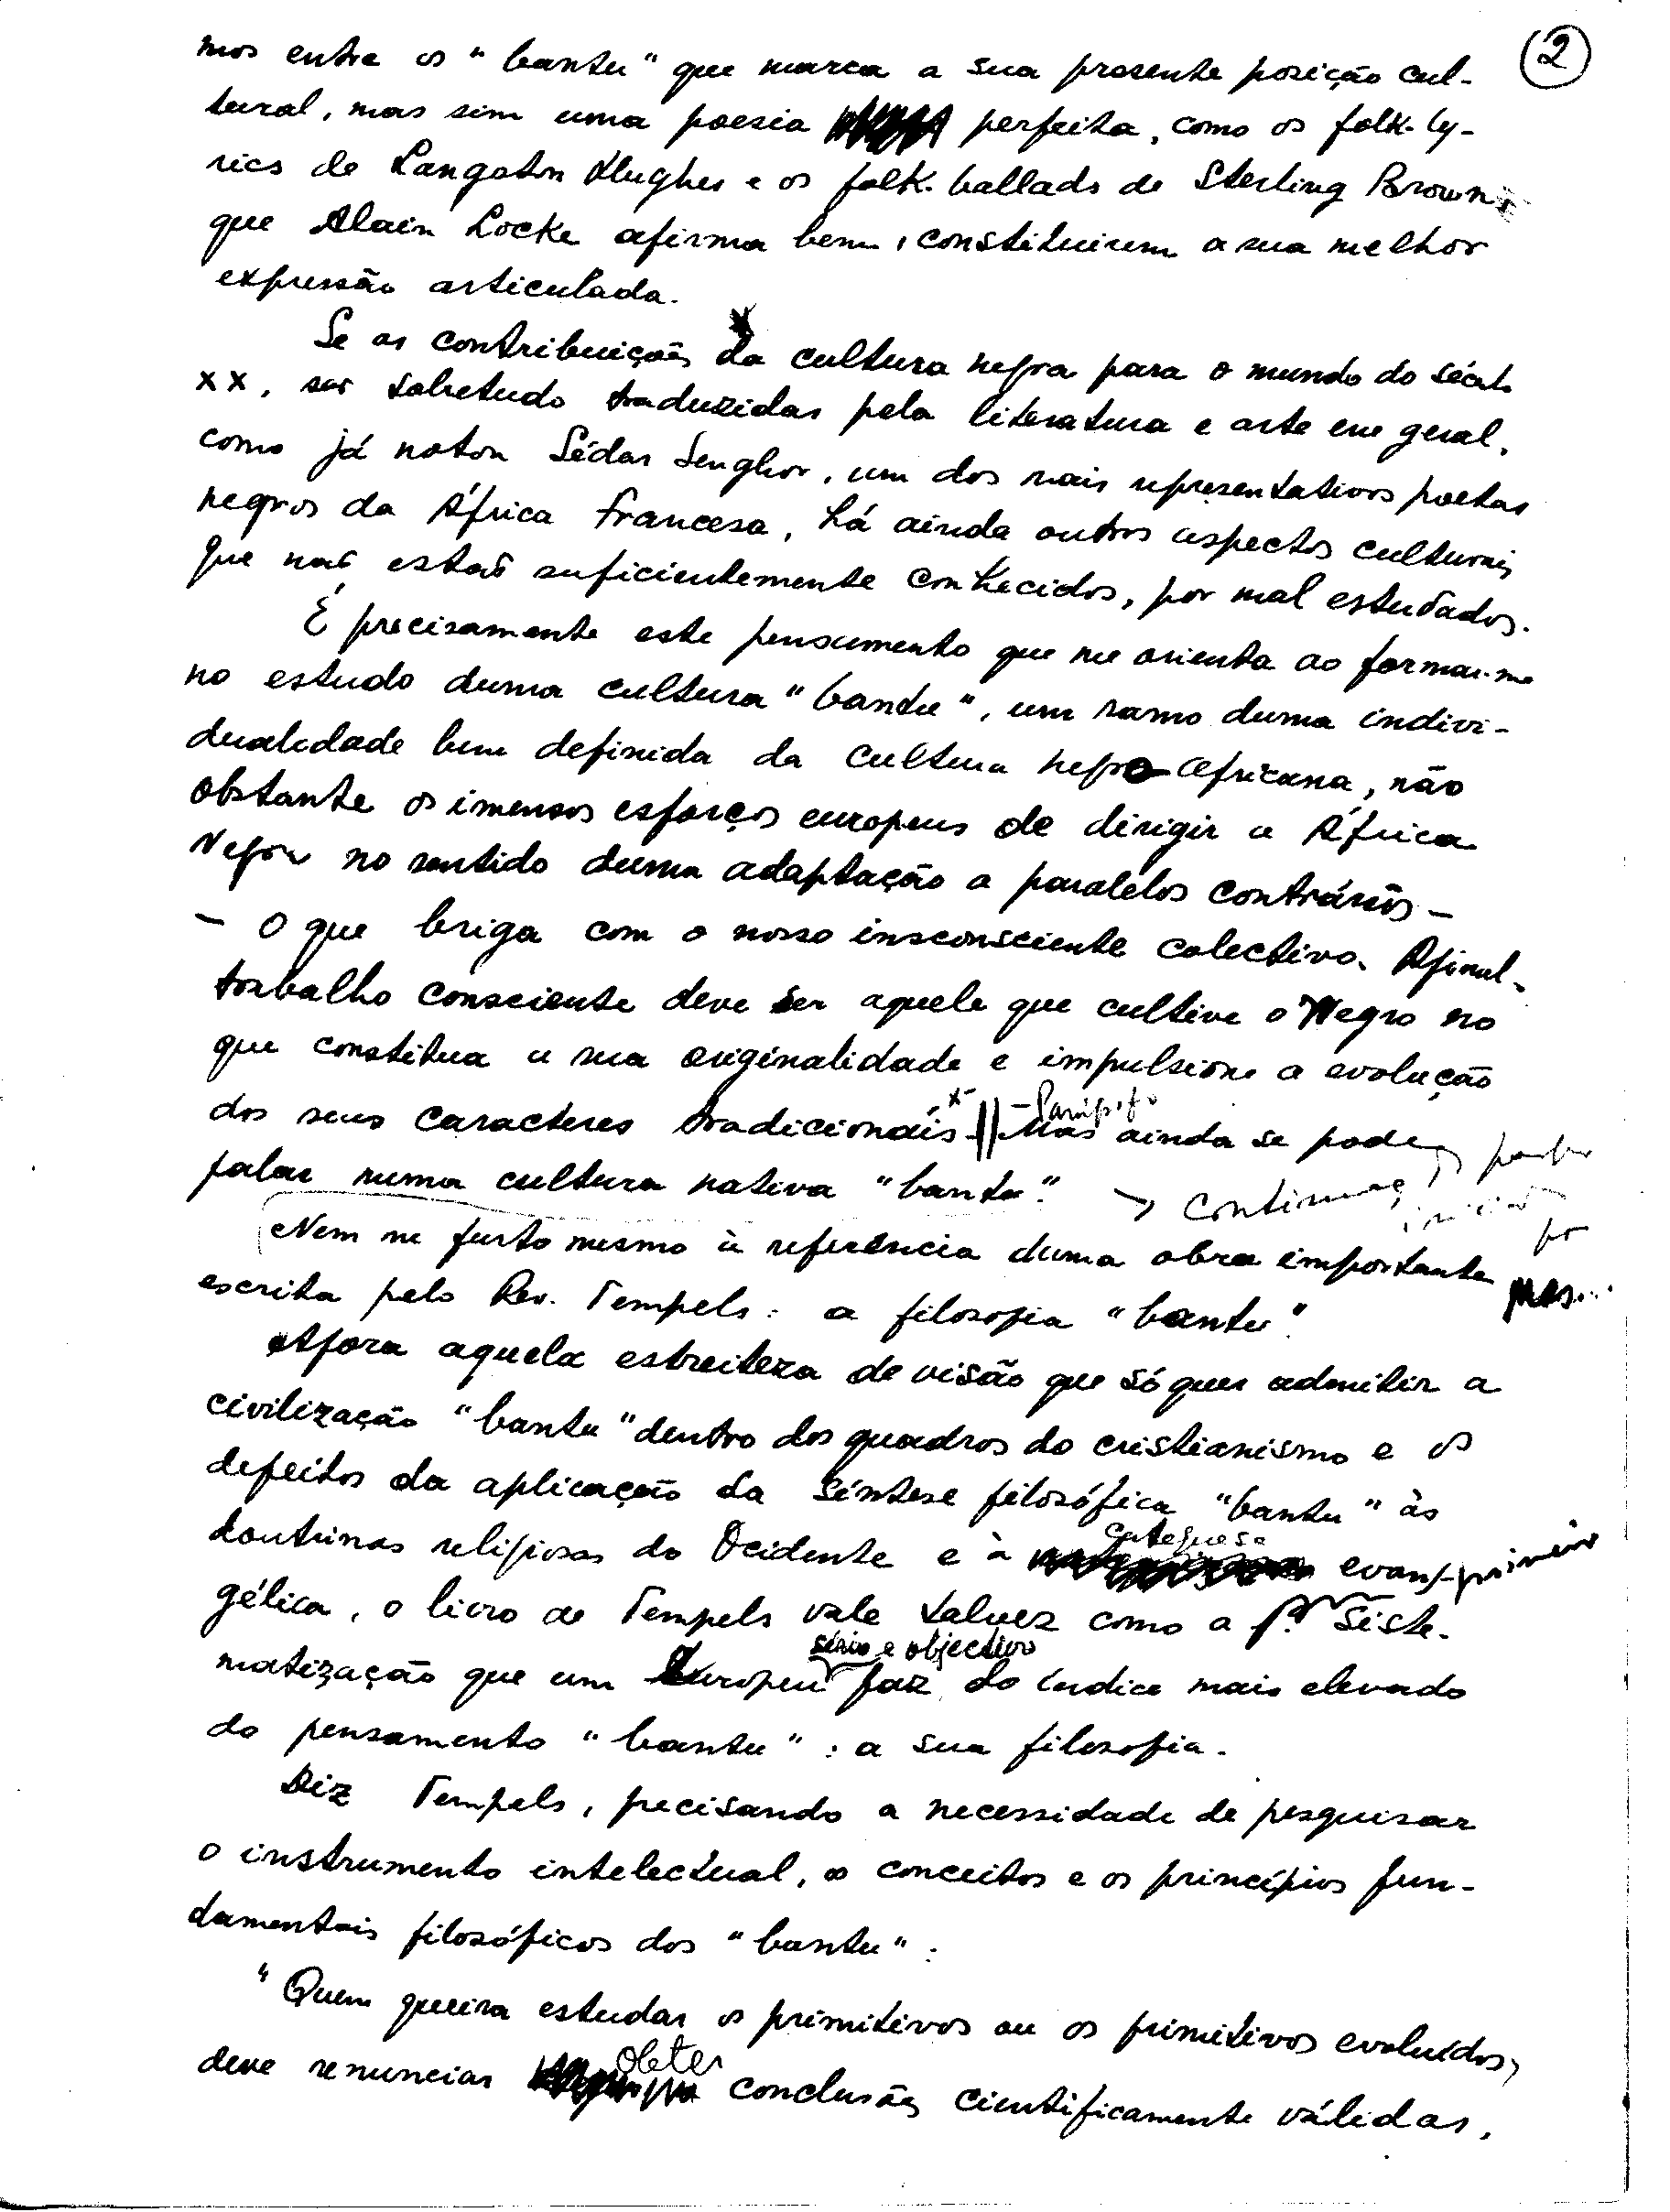 2
mos entre os "bantu" que marca a sua presente posição cul-
tural, mas sim uma poesia perfeita, como os folk-ly-
rics de Langston Hughes e os folk-ballads de Sterling Brown
que Alain Locke afirma bem, constituirem a sua melhor
expressão articulada.
Se as contribuições da cultura negra para o mundo do século
XX, são sobretudo traduzidas pela literatura e arte em geral,
como já notou Sédar Senghor, um dos mais representativos poetas
negros da África francesa, há ainda outros aspectos culturais
que não estão suficientemente conhecidos, por mal estudados.
É precisamente este pensamento que me orienta ao formar-me
no estudo duma cultura "bantu", um ramo duma indivi-
dualidade bem definida da cultura negro-africana, não
obstante os imensos esforços europeus de dirigir a África
Negra no sentido duma adaptação a paralelos contrários -
- O que briga com o nosso insconsciente colectivo. Afinal,
trabalho consciente deve ser aquele que cultive o Negro no
que constitua a sua originalidade e impulsione a evolução
- Parágrafo
dos seus caracteres tradicionais. || Mas ainda se pode
falar numa cultura nativa "bantu".
Nem me furto mesmo à referência duma obra importante
mas...
escrita pelo Rev. Tempels: a filosofia "bantu".
Afora aquela estreiteza de visão que só quer admitir a
civilização "bantu" dentro dos quadros do cristianismo e os
defeitos da aplicação da síntese filosófica "bantu" às
catequese
doutrinas religiosas do Ocidente e à evan-
primeira
gélica, o livro de Tempels vale talvez como a 1ª siste-
sério e objectivo
matização que um Europeu faz do índice mais elevado
do pensamento "bantu": a sua filosofia.
Diz Tempels, precisando a necessidade de pesquisar
o instrumento intelectual, os conceitos e os princípios fun-
damentais filosóficos dos "bantu":
"Quem queira estudar os primitivos ou os primitivos evoluídos,
obter
deve renunciar conclusões cientificamente válidas,